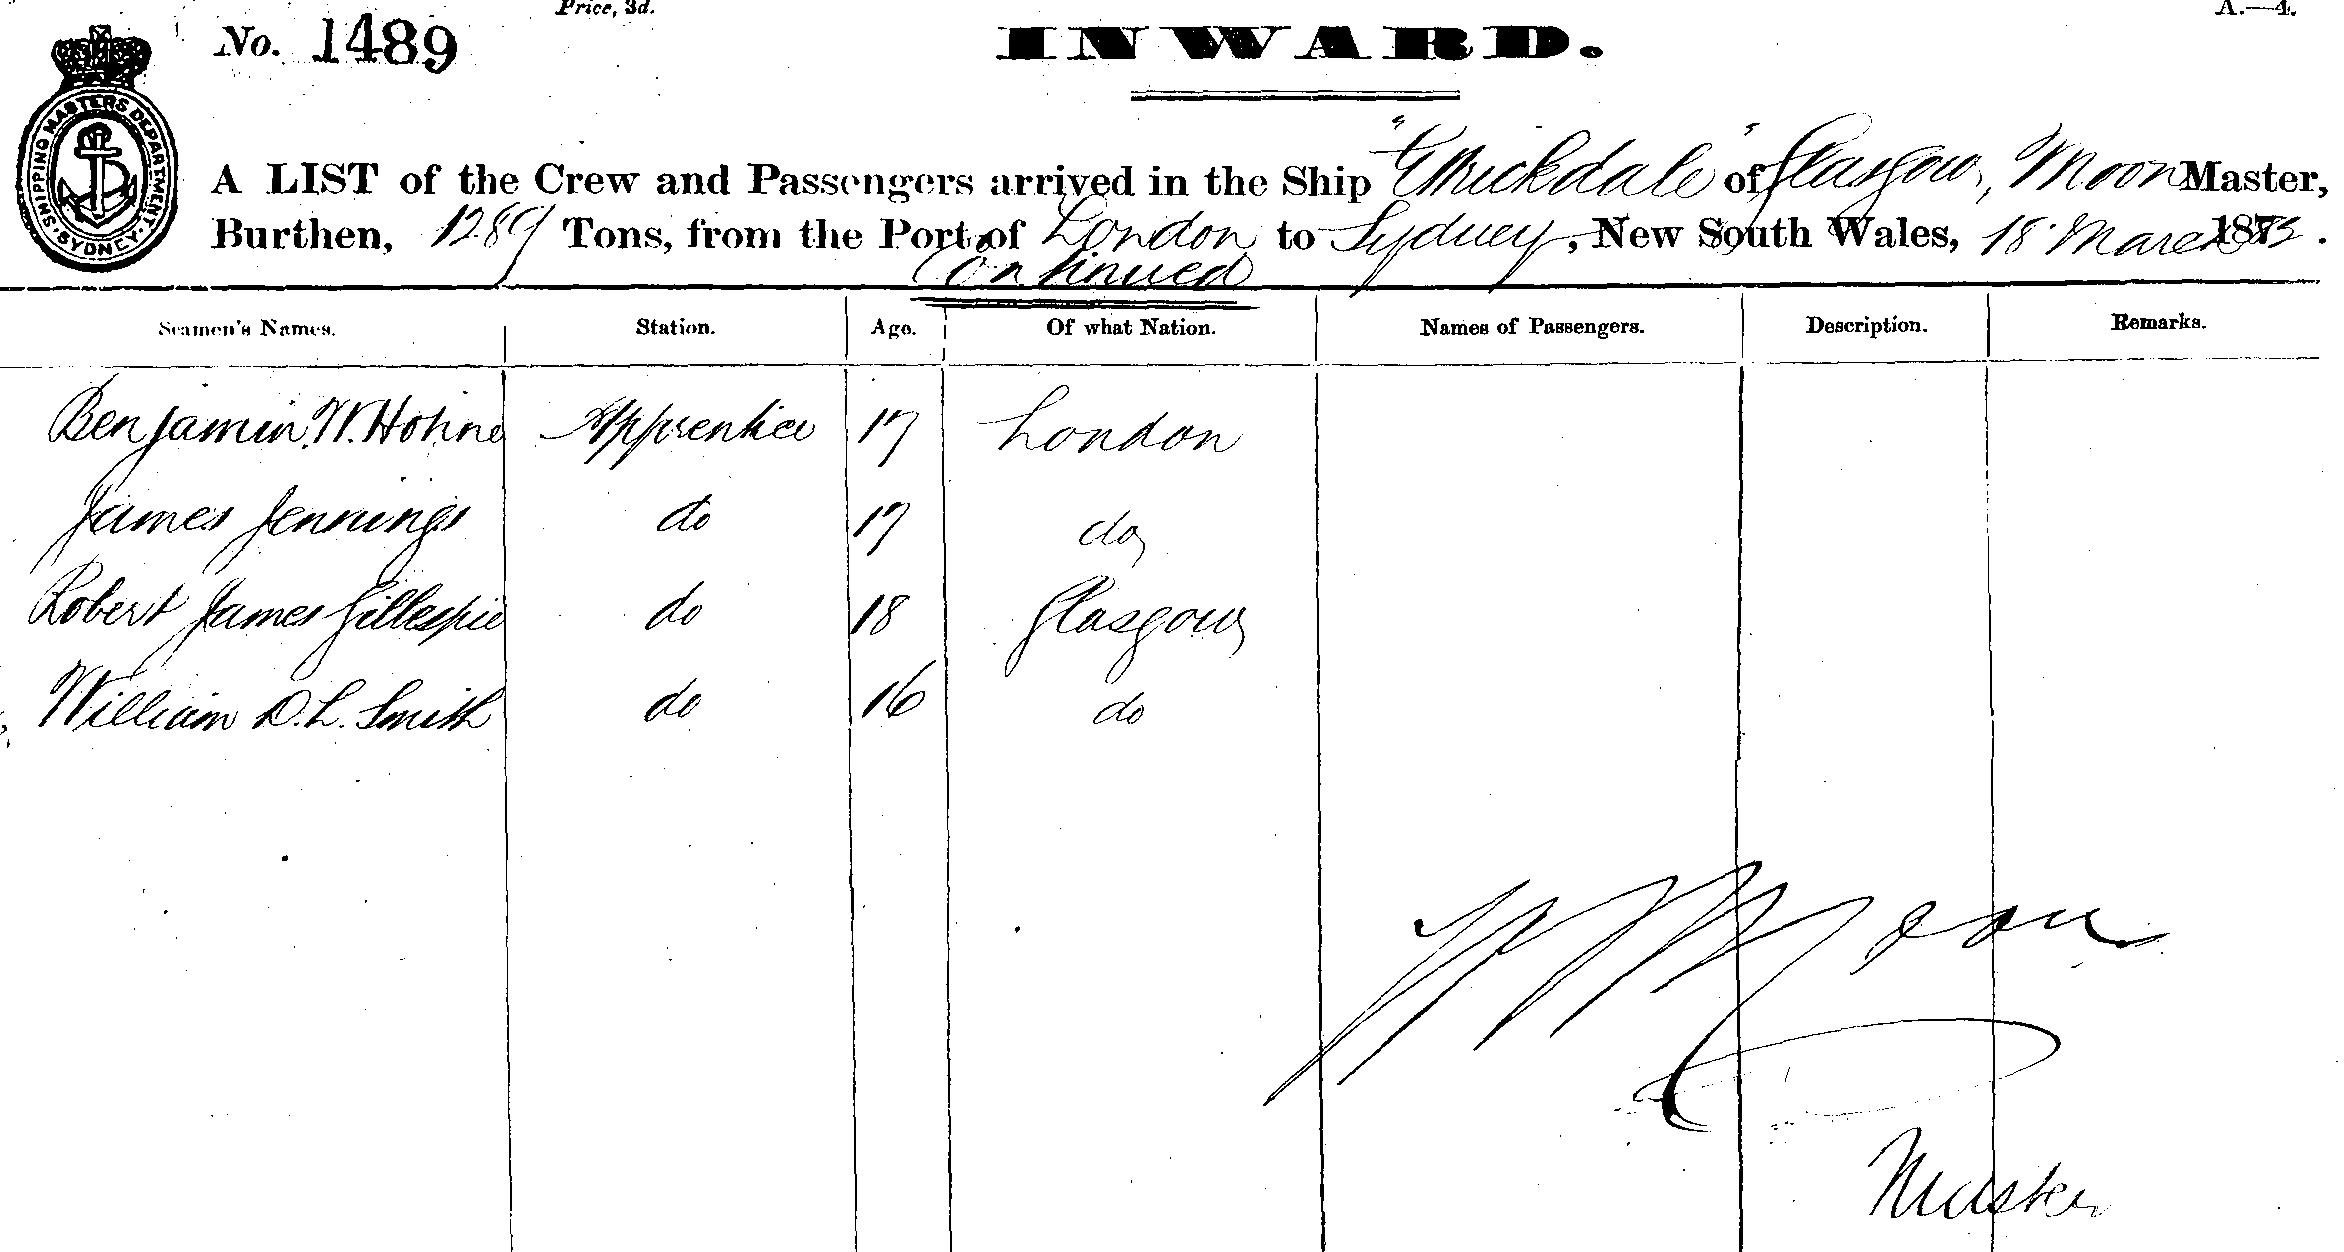 Price, 3d.
A.—4.
No. 1489
INWARD.
SHIPPING MASTERS DEPARTMENT. SYDNEY.
A LIST of the Crew and Passengers arrived in the Ship "Ettrickdale" of Glasgow, Moon Master,
Burthen, 1289 Tons, from the Port of London to Sydney, New South Wales, 18 March 1883.
Continued
Seamen's Names. Station. Age. Of what Nation. Names of Passengers. Description. Remarks.
Benjamin W. Hohne Apprentice 17 London
James Jennings do 17 do
Robert James Gillespie do 18 Glasgow
William D. L. Smith do 16 do
Moon
Master